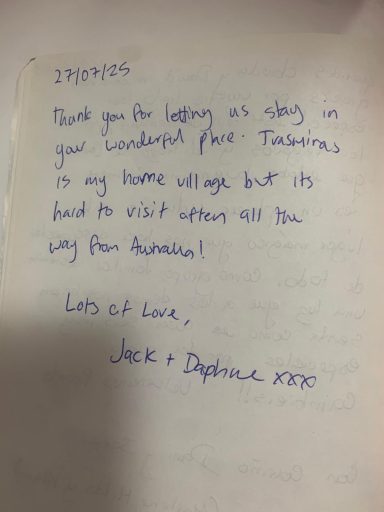 27/07/25
Thank you for letting us stay in
your wonderful place. Trasmiras
is my home village but its
hard to visit often all the
way from Australia!
Lots of Love,
Jack + Daphne xxx